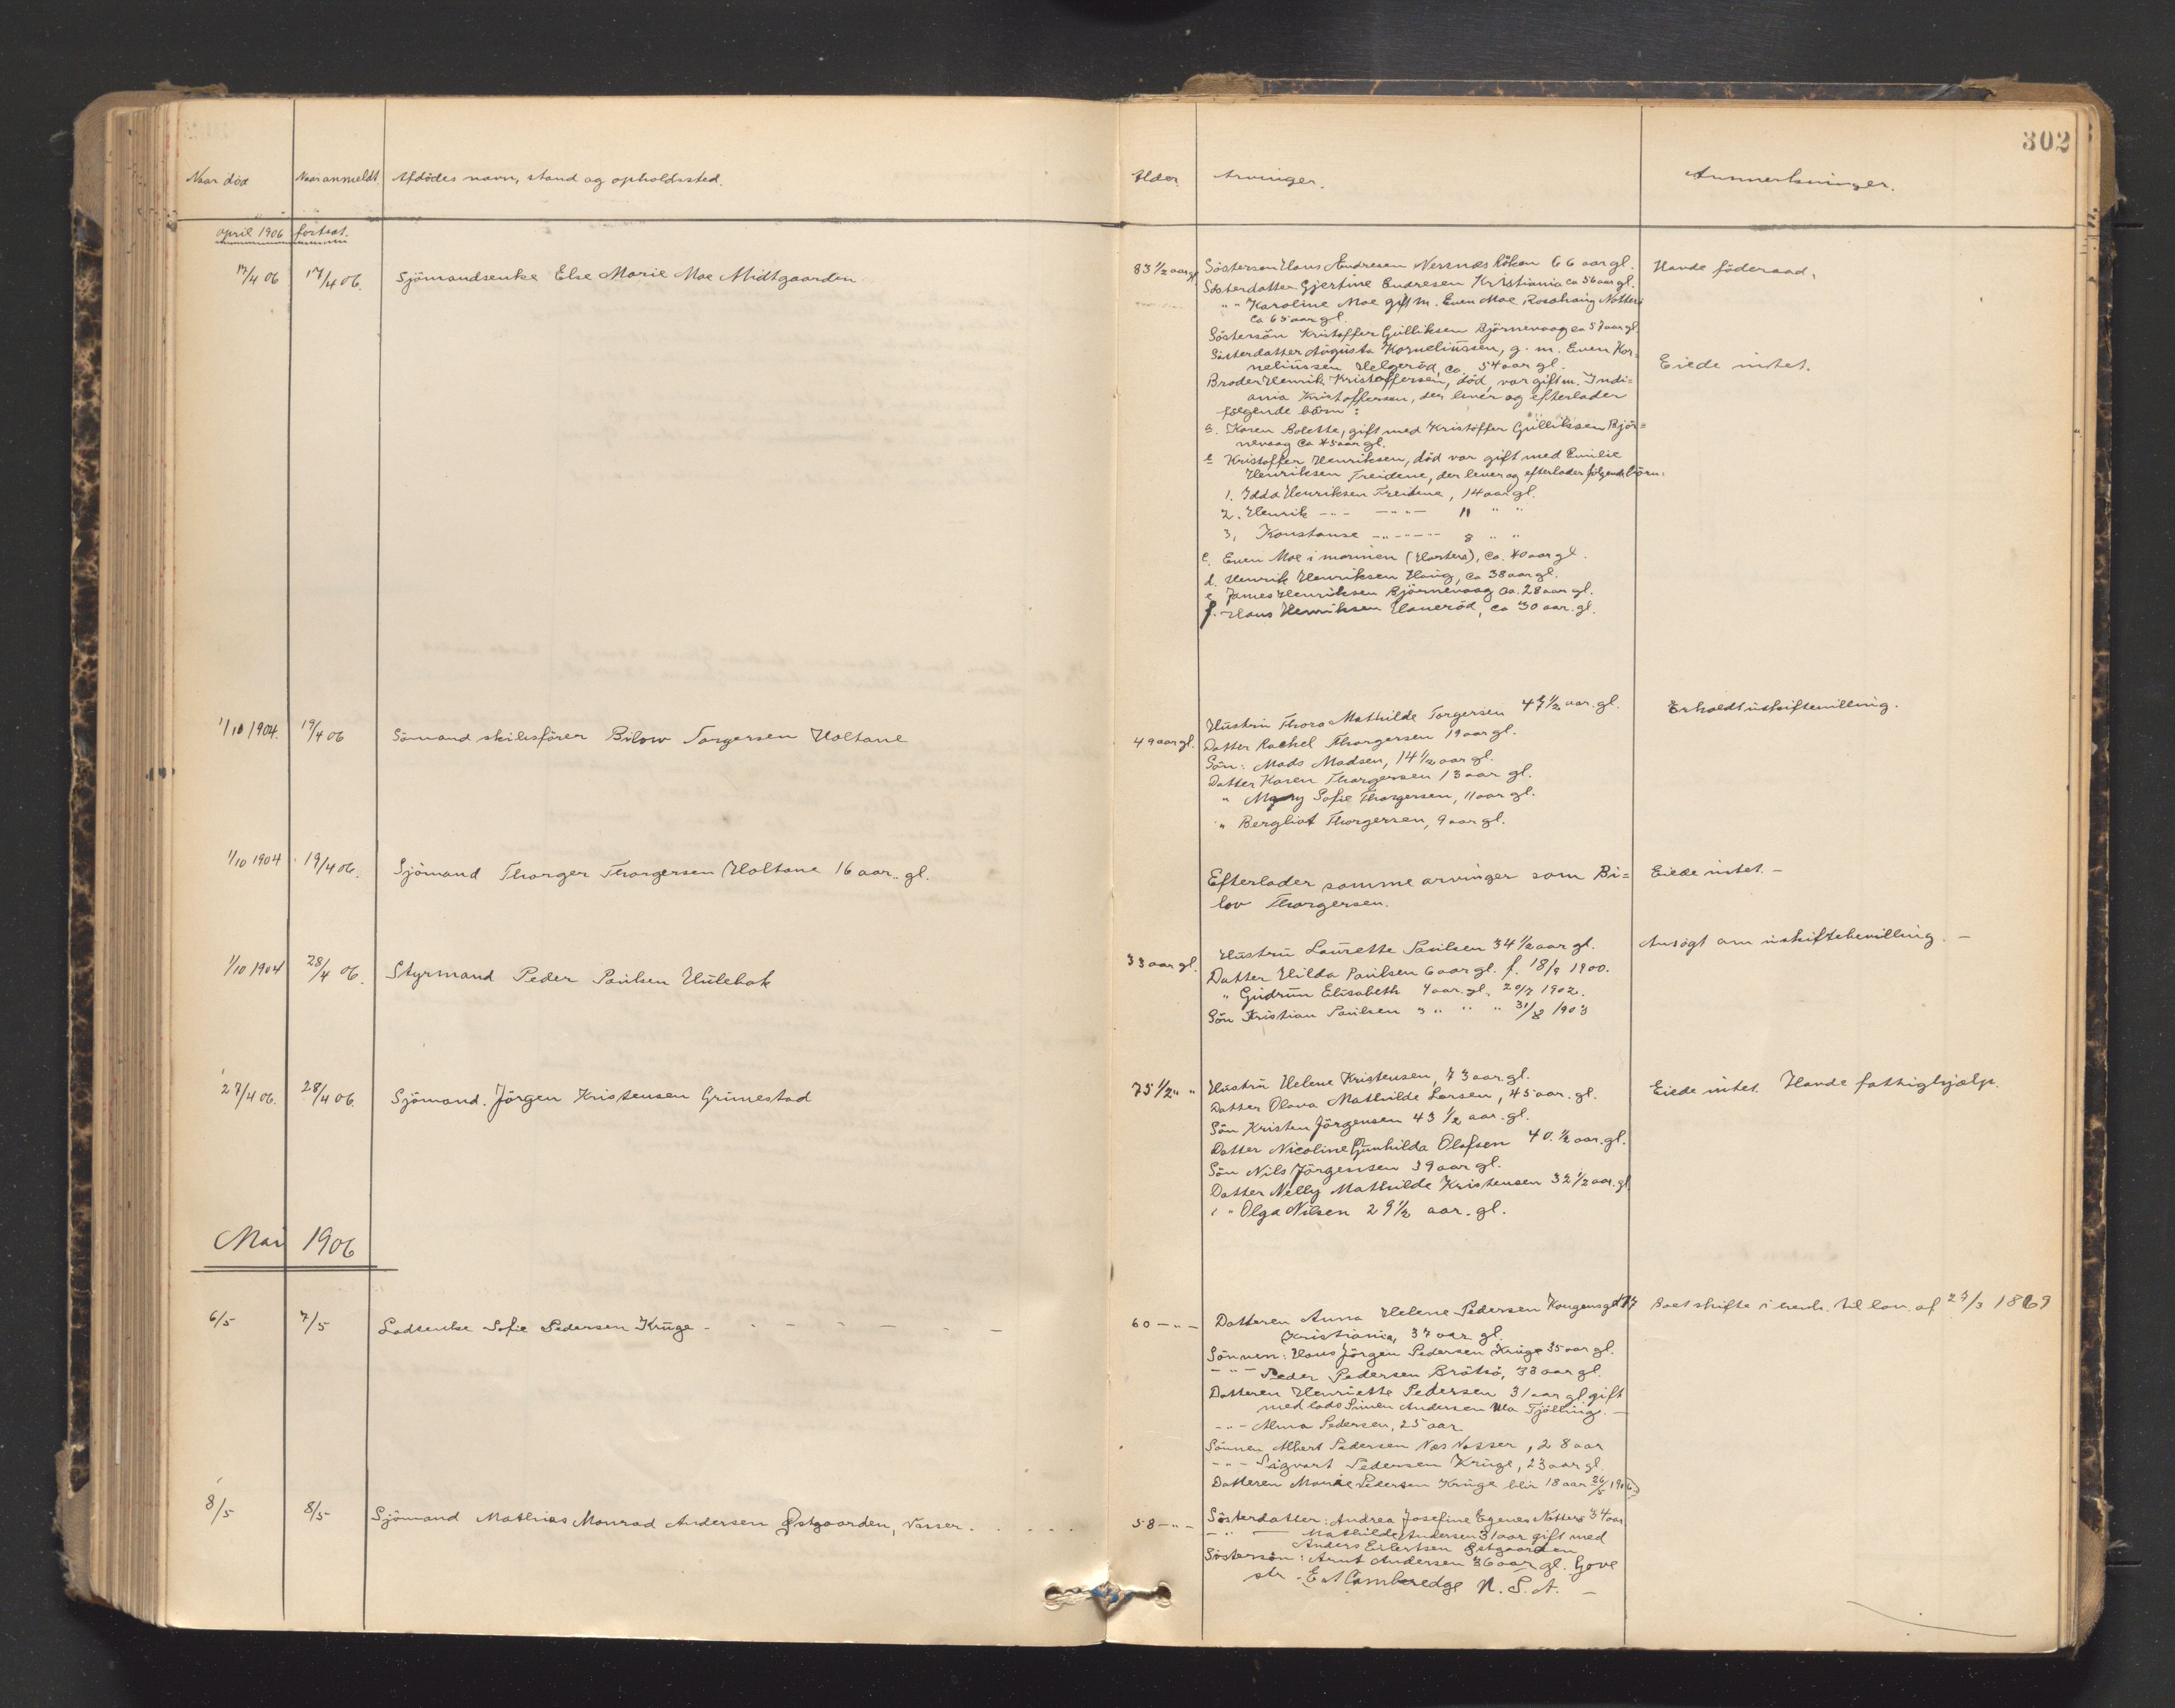 302
Naar död Naar anmeldt. Afdödes navn, stand og opholdssted. Alder. Arvinger. Anmerkninger.
april 1906 fortsat.
17/4 06 17/4 06. Sjömandsenke Else Marie Moe Midtgaarden 83 1/2 aar gl. Söstersøn Hans Andresen Nersnæs Röken 66 aar gl. Havde föderaad.
Sösterdatter Gjertine Andresen Kristiania ca 56 aar gl.
" " Karoline Moe gift m. Even Moe Rosahaug Nötterö
ca 65 aar gl.
Söstersön Kristoffer Gulliksen Bjørnevaag ca 57 aar gl.
Sösterdatter Augusta Korneliussen, g. m. Even Kor=
neliussen Helgeröd, ca. 54 aar gl. Eiede intet.
Broder Henrik Kristoffersen, död, var gift m. Indi=
ana Kristoffersen, der lever og efterlader
følgende börn:
a. Karen Bolette, gift med Kristoffer Gulliksen Bjør=
nevaag ca 45 aar gl.
b Kristoffer Henriksen, död var gift med Emilie
Henriksen Treidene, der lever og efterlader følgende börn:
1. Idda Henriksen Treidene, 14 aar gl.
2. Henrik -"- -"- 11 " "
3, Konstanse -"-"- 8 " "
c. Even Moe i marinen (Horten), ca. 40 aar gl.
d. Henrik Henriksen Haug, ca 38 aar gl.
e James Henriksen Bjørnevaag ca. 28 aar gl.
f. Hans Henriksen Haneröd, ca 30 aar. gl.
1/10 1904. 19/4 06 Sömand skibsfører Bilow Torgersen Holtane 49 aar gl. Hustru Thora Mathilde Torgersen 47 1/2 aar. gl. Erholdt uskiftevilling.
Datter Rachel Thorgersen 19 aar gl.
Sön: Mads Madsen, 14 1/2 aar gl.
Datter Karen Thorgersen 13 aar gl.
" Mary Sofie Thorgersen, 11 aar gl.
" Bergliot Thorgersen, 9 aar gl.
1/10 1904 19/4 06. Sjömand Thorger Thorgersen Holtane 16 aar. gl. Efterlader samme arvinger som Bi= Eiede intet. -
lov Thorgersen.
1/10 1904 28/4 06. Styrmand Peder Paulsen Hulebak 33 aar gl. Hustru Laurette Paulsen 34 1/2 aar gl. Ansögt om uskiftebevilling. -
Datter Hilda Paulsen 6 aar gl. f. 18/9 1900.
" Gudrun Elisabeth 4 aar. gl. 20/7 1902.
Sön Kristian Paulsen 3 " " " 31/8 1903
27/4 06. 28/4 06. Sjömand. Jörgen Kristensen Grimestad 75 1/2 " " Hustru Helene Kristensen, 73 aar gl. Eiede intet. Havde fattighjælp.
Datter Olava Mathilde Larsen, 45 aar. gl.
Sön Kristen Jörgensen 43 1/2 aar. gl.
Datter Nicoline Gunhilda Olafsen 40. 1/2 aar. gl.
Sön Nils Jörgensen 39 aar gl.
Datter Nelly Mathilde Kristensen 32 1/2 aar. gl
" Olga Nilsen 29 1/2 aar. gl.
Mai 1906
6/5 7/5 Lodsenke Sofie Pedersen Kruge - - - - - - 60 -"- Datteren Anna Helene Pedersen Kongensgd 17 Boet skifte i henh. til lov. af 27/3 1869
Kristiania, 37 aar gl.
Sönnen: Hans Jörgen Pedersen Kruge 35 aar gl.
-"- Peder Pedersen Brötsö, 33 aar gl.
Datteren Henriette Pedersen 31 aar gl. gift
med lods Simen Andersen Ula Tjölling. -
-"- Alma Pedersen, 25 aar
Sönnen Albert Pedersen Næs Vasser, 28 aar
-"- Sigvart Pedersen Kruge, 23 aar gl.
Datteren Marie Pedersen Kruge blir 18 aar 26/5 1906.
8/5 8/5 Sjömand Mathias Monrad Andersen Østgaarden, Vasser. . . . . 58 -"- Sösterdatter: Andrea Josefine Egenes Nötterö 34 aar
-"- Mathilde Andersen 31 aar gift med
Anders Eilertsen Østgaarden
Söstersön: Arnt Andersen 36 aar gl. Gove
str. Eat Camberedge N. S. A. -